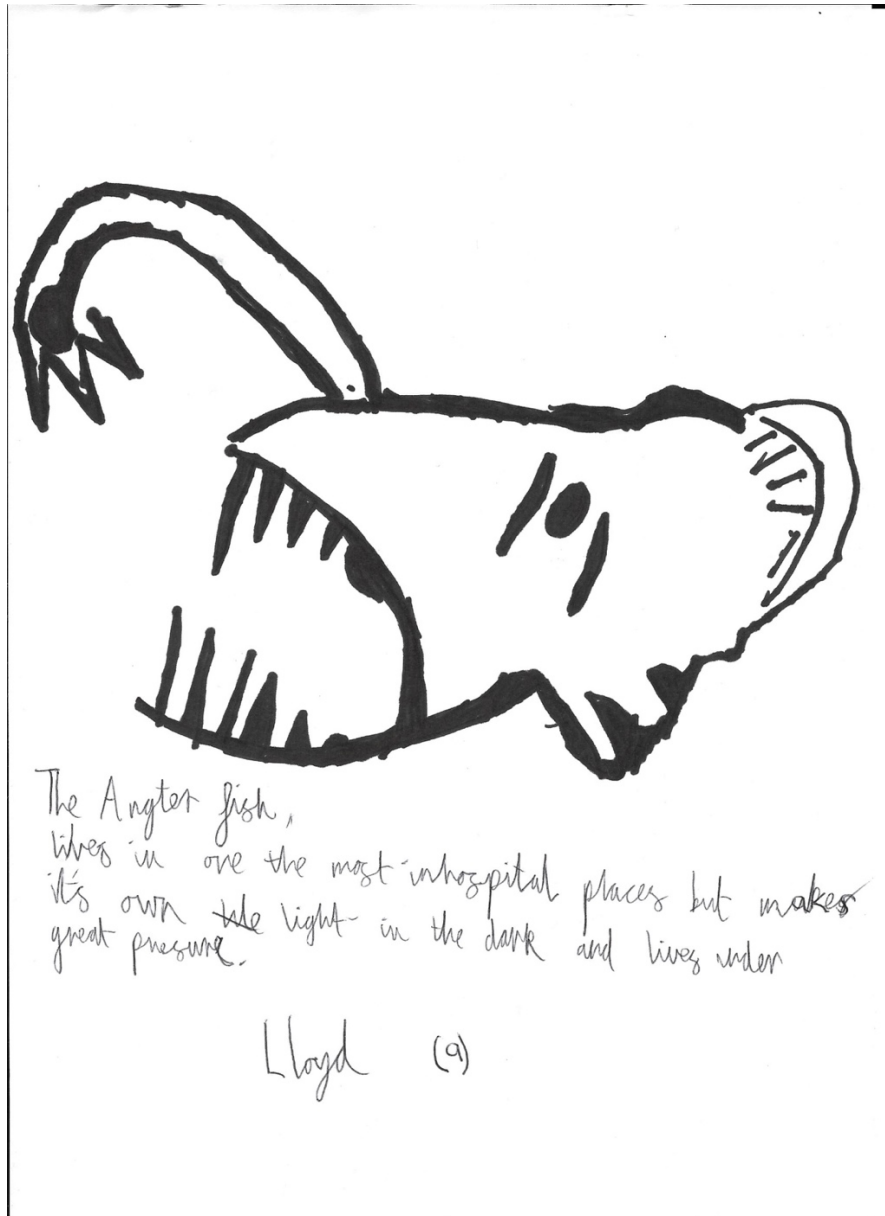 The Angter fish,
lives in one the most inhospital places but makes
it's own light in the dark and lives under
great presure.
Lloyd (9)